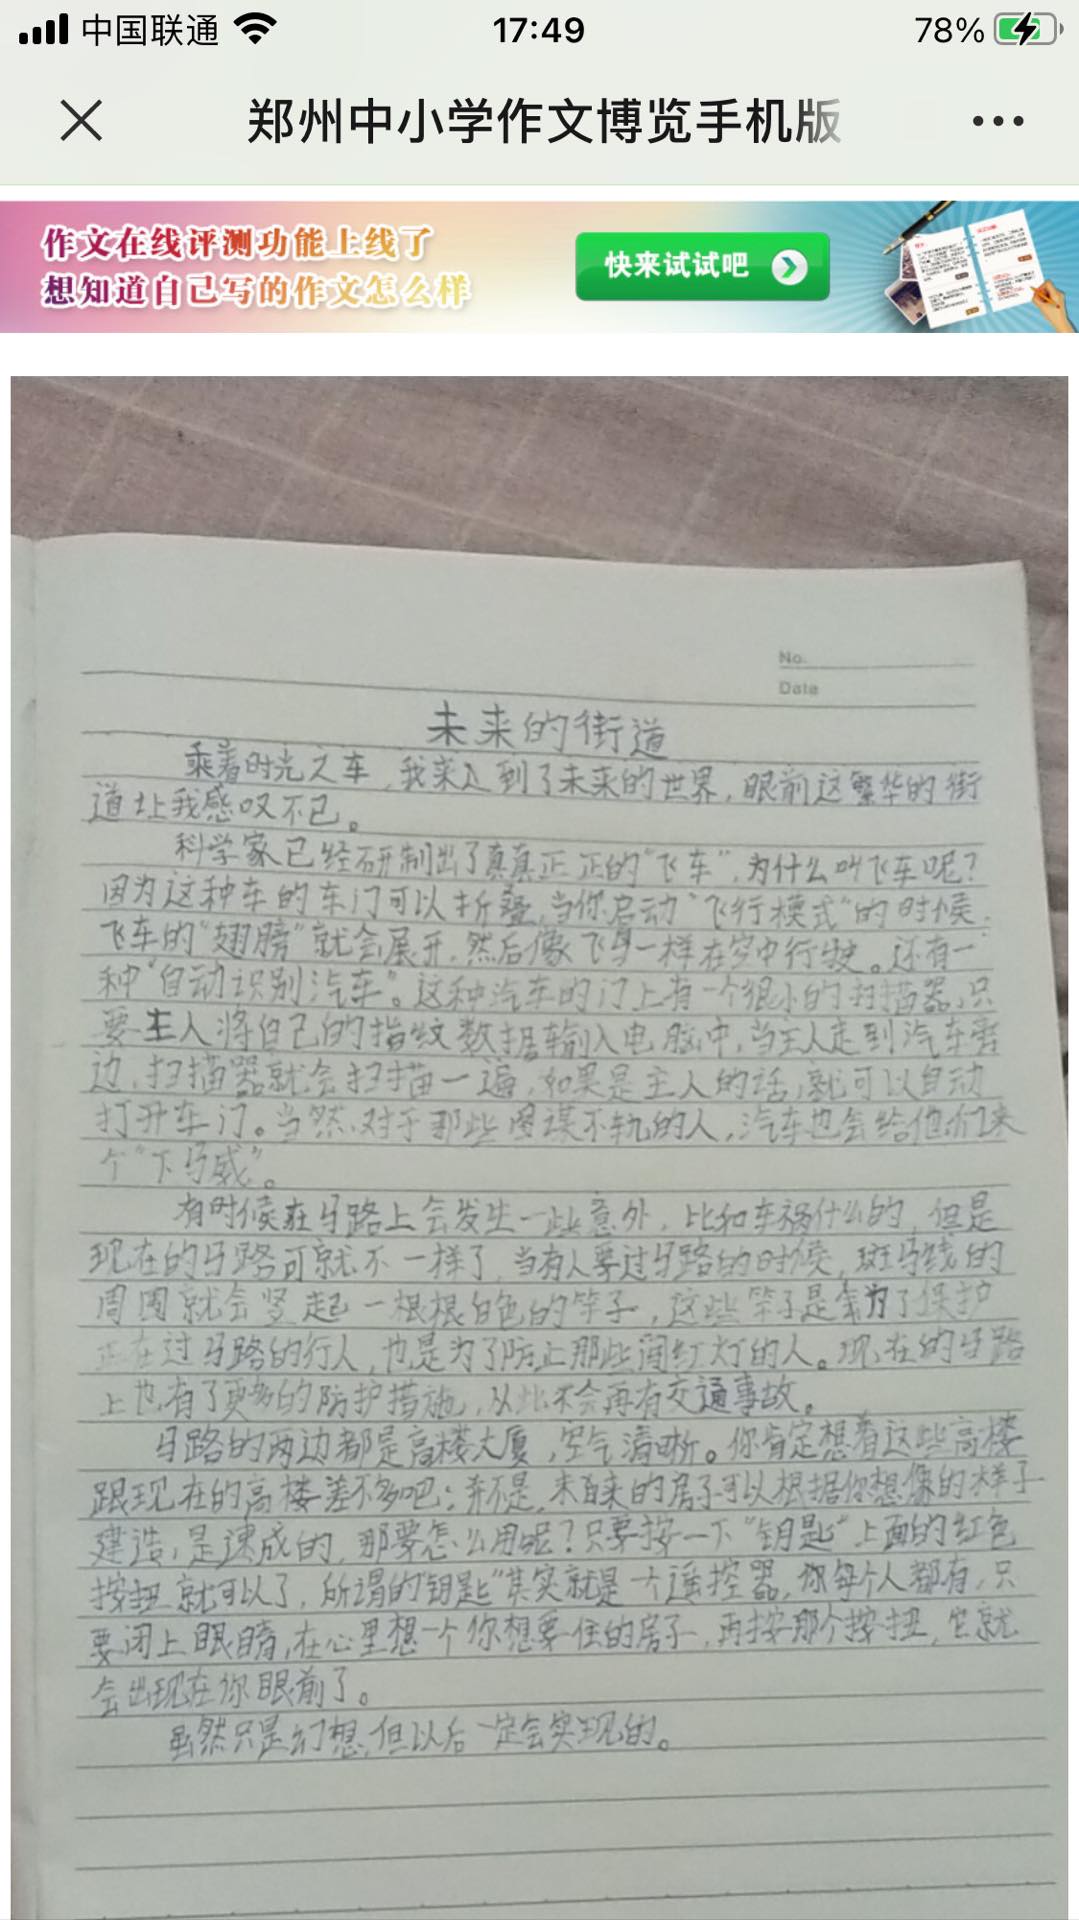 中国联通
17:49
78%
郑州中小学作文博览手机版
作文在线评测功能上线了
想知道自己写的作文怎么样
快来试试吧
No.
Date
未来的街道
乘着时光之车，我来到了未来的世界，眼前这繁华的街
道让我感叹不已。
科学家已经研制出了真真正正的“飞车”，为什么叫飞车呢？
因为这种车的车门可以折叠，当你启动“飞行模式”的时候，
飞车的“翅膀”就会展开，然后像飞鸟一样在空中行驶。还有一
种“自动识别汽车”。这种汽车的门上有一个很小的扫描器，只
要主人将自己的指纹数据输入电脑中，当主人走到汽车旁
边，扫描器就会扫描一遍，如果是主人的话，就可以自动
打开车门。当然，对于那些图谋不轨的人，汽车也会给他们来
个“下马威”。
有时候在马路上会发生一些意外，比如车祸什么的，但是
现在的马路可就不一样了，当有人要过马路的时候，斑马线的
周围就会竖起一根根白色的竿子，这些竿子是为了保护
正在过马路的行人，也是为了防止那些闯红灯的人。现在的马路
上也有了更多的防护措施，从此不会再有交通事故。
马路的两边都是高楼大厦，空气清晰。你肯定想着这些高楼
跟现在的高楼差不多吧；才不是，未来的房子可以根据你想像的样子
建造，是速成的，那要怎么用呢？只要按一下“钥匙”上面的红色
按扭就可以了，所谓的钥匙“其实就是一个遥控器，每个人都有，只
要闭上眼睛，在心里想一个你想要住的房子，再按那个按扭，它就
会出现在你眼前了。
虽然只是幻想，但以后一定会实现的。